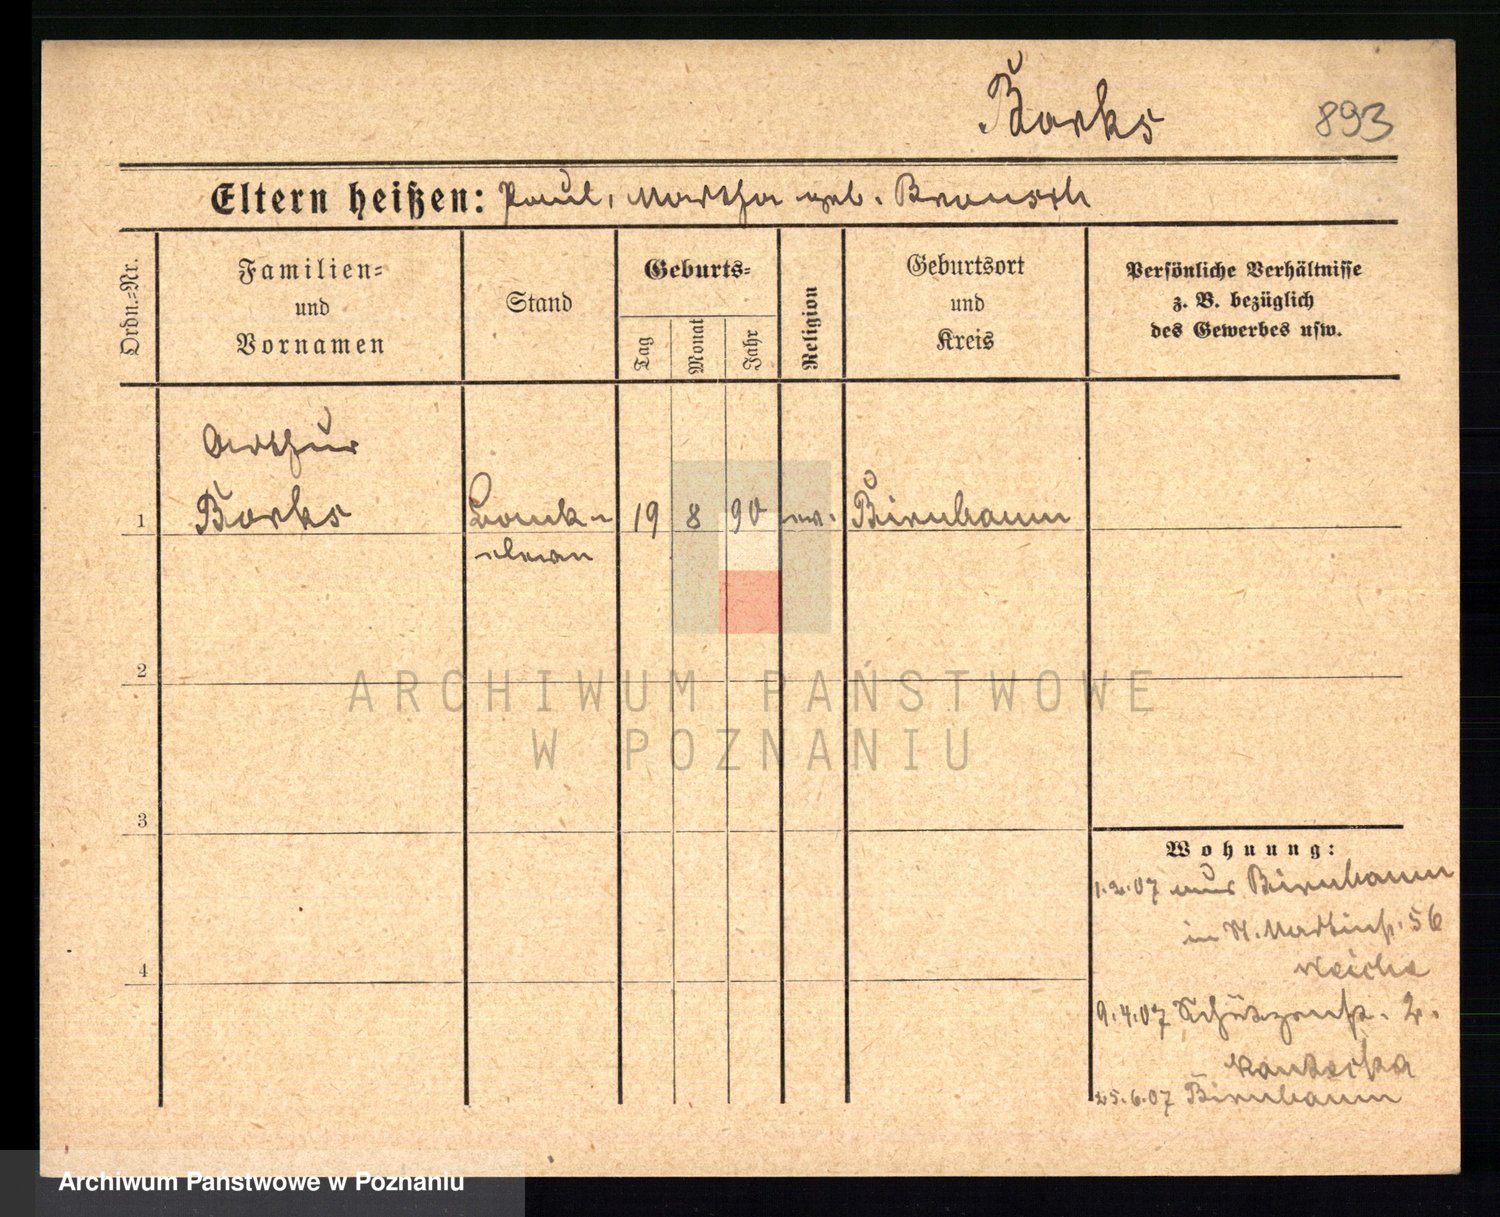 Borks
893
Eltern heißen: Paul, Martha geb. Bransch
Ordn.-Nr.
Familien-
und
Vornamen
Stand
Geburts-
Tag
Monat
Jahr
Religion
Geburtsort
und
Kreis
Persönliche Verhältnisse
z. B. bezüglich
des Gewerbes usw.
Arthur
1 Borks 19 8 90 ev. Birnbaum
2
3
4
Wohnung:
1.2.07 aus Birnbaum
in St. Martinstr. 56
9.4.07 Schützenstr. 2.
25.6.07 Birnbaum
ARCHIWUM PAŃSTWOWE
W POZNANIU
Archiwum Państwowe w Poznaniu